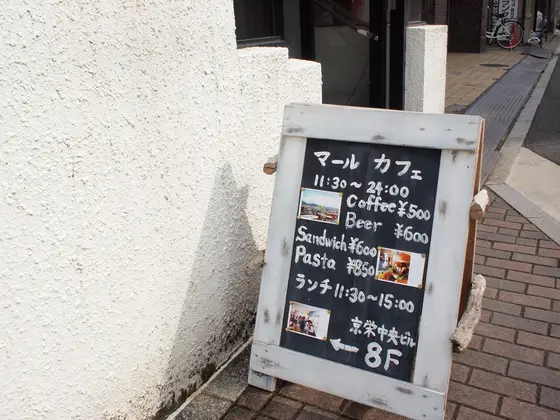 マール カフェ
11:30〜24:00
Coffee ¥500
Beer ¥600
Sandwich ¥600
Pasta ¥850
ランチ 11:30〜15:00
京栄中央ビル
← 8F